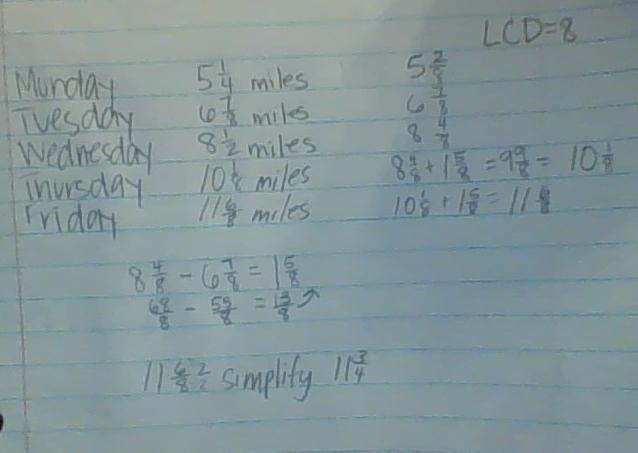 LCD=8
Munday 5 1/4 miles 5 2/8
Tuesday 6 7/8 miles 6 7/8
Wednesday 8 1/2 miles 8 4/8
Thursday 10 1/8 miles 8 4/8 + 1 5/8 = 9 9/8 = 10 1/8
Friday 11 6/8 miles 10 1/8 + 1 5/8 = 11 6/8
8 4/8 - 6 7/8 = 1 5/8
68/8 - 55/8 = 13/8 ↗
11 6/8 2/2 simplify 11 3/4